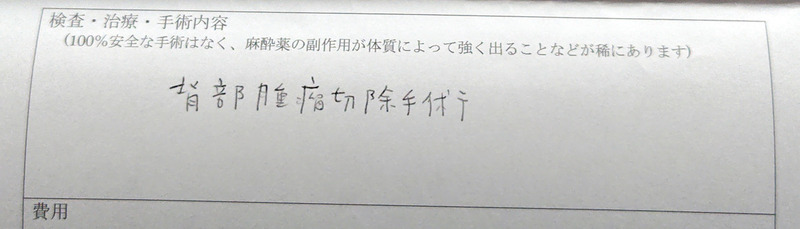 検査・治療・手術内容
(100%安全な手術はなく、麻酔薬の副作用が体質によって強く出ることなどが稀にあります)
背部腫瘤切除手術
費用